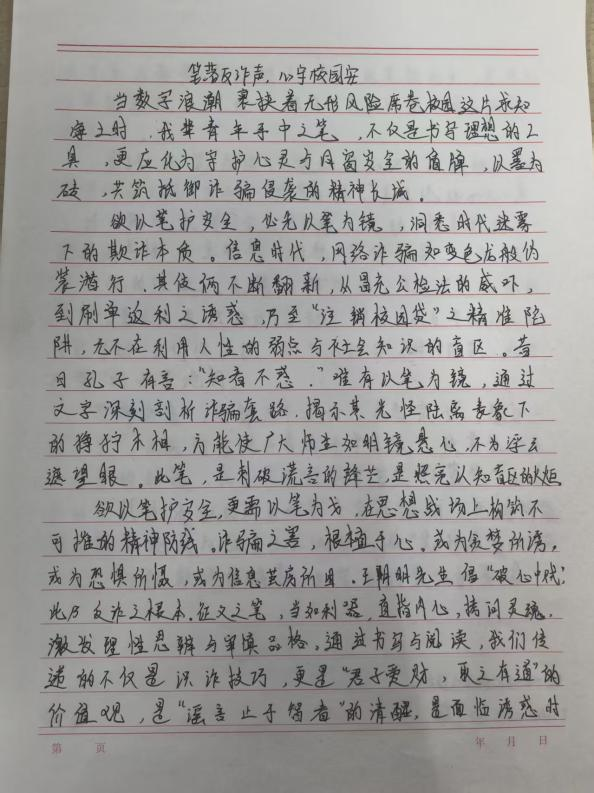 笔落反诈声，心守校园安
当数字浪潮裹挟着无形风险席卷校园这片求知
海之时，我辈青年手中之笔，不仅是书写理想的工
具，更应化为守护心灵与校园安全的盾牌，以墨为
砖，共筑抵御诈骗侵袭的精神长城。
欲以笔护安全，必先以笔为镜，洞悉时代迷雾
下的欺诈本质。信息时代，网络诈骗如变色龙般伪
装潜行，其伎俩不断翻新，从冒充公检法的威吓，
到刷单返利之诱惑，乃至“注销校园贷”之精准陷
阱，无不在利用人性的弱点与社会知识的盲区。昔
日孔子有言：“知者不惑。”唯有以笔为镜，通过
文字深刻剖析诈骗套路，揭示其光怪陆离表象下
的狰狞本相，方能使广大师生如明镜悬心，不为浮云
遮望眼。此笔，是刺破谎言的锋芒，是照亮认知盲区的火炬
欲以笔护安全，更需以笔为戈，在思想战场上构筑不
可摧的精神防线。诈骗之害，根植于心。或为贪婪所诱，
或为恐惧所慑，或为信息茧房所困。王阳明先生倡“破心中贼”，
此乃反诈之根本。征文之笔，当如利器，直指内心，拷问灵魂，
激发理性思辨与审慎品格。通过书写与阅读，我们传
递的不仅是识诈技巧，更是“君子爱财，取之有道”的
价值观，是“谣言止于智者”的清醒，是面临诱惑时
第 页 年 月 日